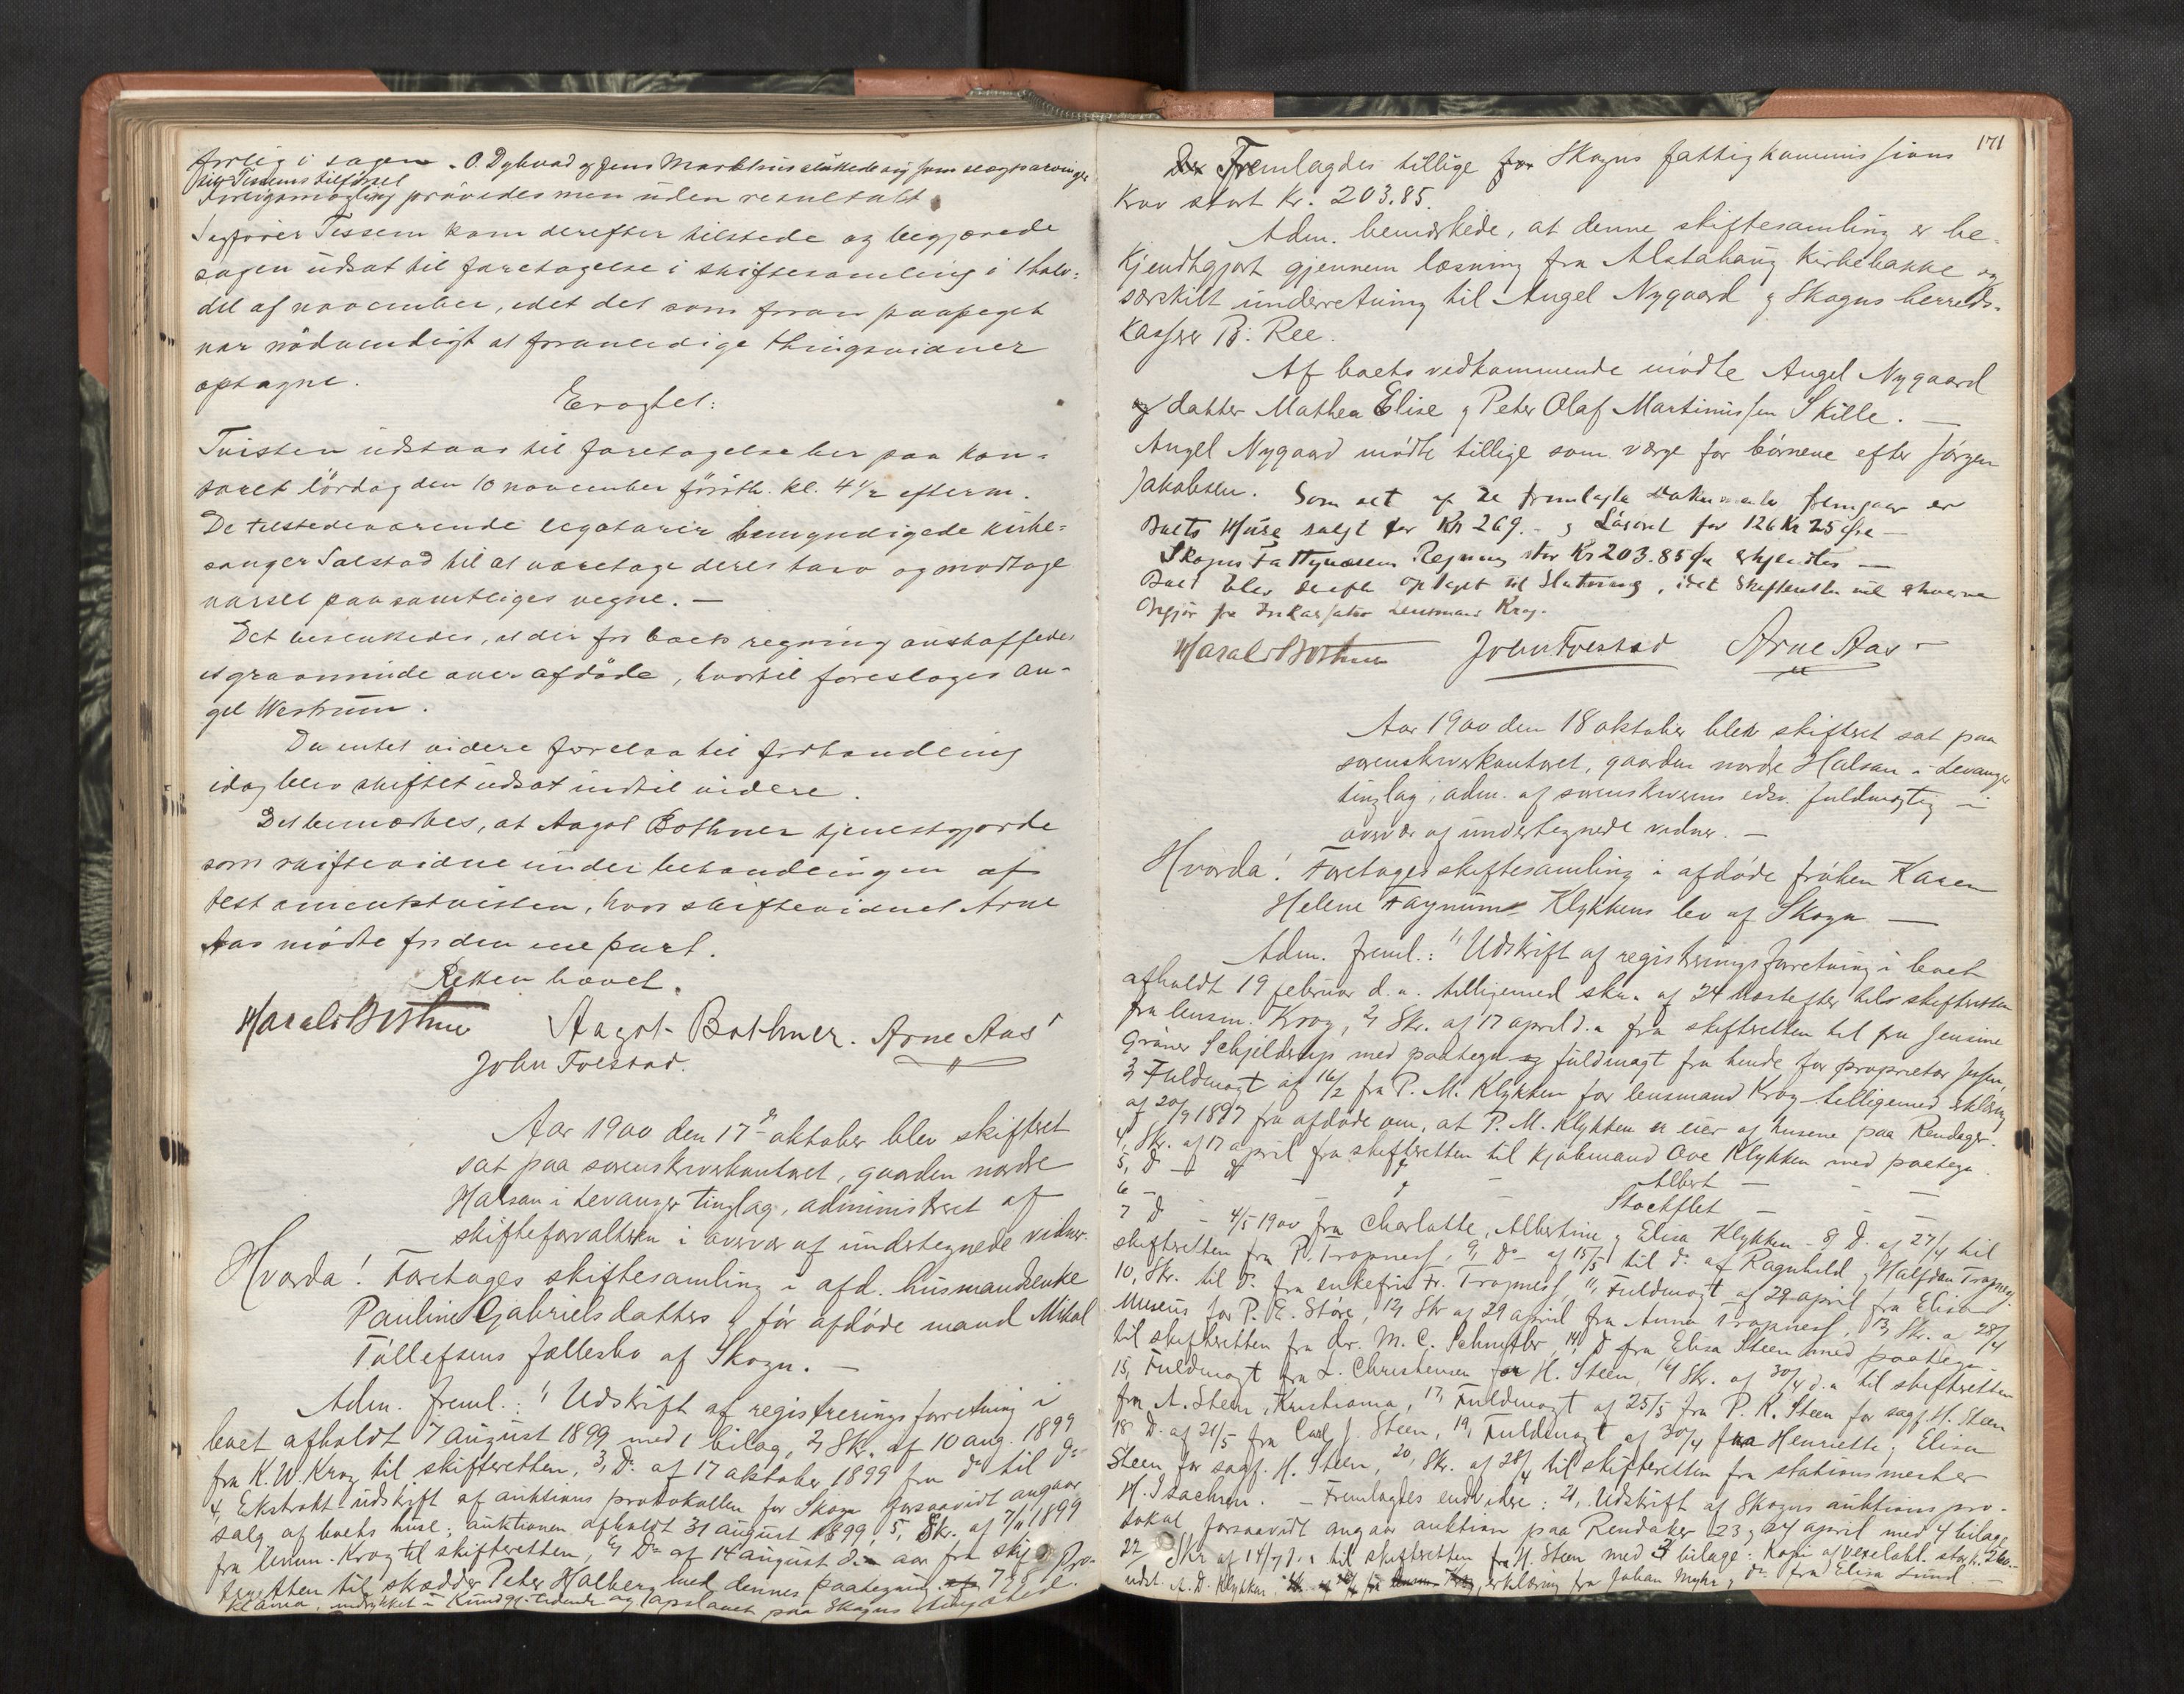 forlig i sagen. O. Dybvad og Jens Markhus sluttede sig som slægtsarvinger
til Tessems tilførsel
Forligsmægling prøvedes men uden resultat.
Sagfører Tessem kom derefter tilstede og begjærede
sagen udsat til foretagelse i skiftesamling i 1 halv-
del af november, idet det som foran paapeget
var nødvendigt at foranledige thingsvidner
optagne.
Eragtet:
Tvisten udstaar til foretagelse her paa kon-
toret lördag den 10 november förstk. kl. 4 1/2 efterm.
De tilstedeværende legatarer bemyndigede kirke-
sanger Salstad til at varetage deres tarv og modtage
varsel paa samtliges vegne. —
Det besluttedes, at der for boets regning anskaffedes
et gravminde over afdöde, hvortil foresloges An-
gel Westrum.
Da intet videre forelaa til forhandling
idag blev skiftet udsat indtil videre.
Det bemærkes, at Aagot Bothner tjenestgjorde
som skiftevidne under behandlingen af
testamentstvisten, hvor skiftevidnet Arne
Aas mödte for den ene part.
Retten hævet.
Harald Bothner Aagot Bothner. Arne Aas
John Foestad.
Aar 1900 den 17de oktober blev skifteret
sat paa sorenskriverkontoret, gaarden nordre
Halsan i Levanger tinglag, administreret af
skifteforvalteren i overvær af undertegnede vidner.
Hvorda! Foretoges skiftesamling i afd. husmandsenke
Pauline Gabrielsdatters & för afdöde mand Mikal
Tollefsens fællesbo af Skogn. —
Adm. freml.: 1, Udskrift af registreringsforretning i
boet afholdt 7 august 1899 med 1 bilag, 2, Skr. af 10 aug. 1899
fra K. W. Krog til skifteretten, 3, Do af 17 oktober 1899 fra do til do
4, Ekstrakt-udskrift af auktions protokollen for Skogn forsaavidt angaar
salg af boets huse; auktionen afholdt 31 august 1899, 5, Skr. af 7/11 1899
fra lensm. Krog til skifteretten, 6, Do af 14 august d. aar fra skif-
teretten til skrædder Peter Halberg med dennes paategning 7, Pro-
klama, indrykket i Kundgj. tidende og oplæst paa Skogns tingsted.
171
Fremlagdes tillige Skogns fattigkommissions
krav stort Kr. 203.85.
Adm. bemærkede, at denne skiftesamling er be-
kjendtgjort gjennem læsning fra Alstahaug kirkebakke og
særskilt underretning til Angel Nygaard & Skogns herreds-
kasserer B: Ree.
Af boets vedkommende mödte Angel Nygaard
datter Mathea Elise & Peter Olaf Martinussen Skille. —
Angel Nygaard mödte tillige som værge for börnene efter Jörgen
Jakobsen. Som det af de fremlagte dokumenter fremgaar er
Boets Huse solgt for Kr 269. — og Lösöret for 126 Kr 25 Öre —
Skogns Fattigvæsens Regning stor Kr 203.85 Öre erkjendtes —
Boet blev derefter optaget til Slutning, idet Skifteretten vil erhverve
Opgjör fra Inkassator Lensmand Krog.
Harald Bothner John Foestad Arne Aas
Aar 1900 den 18 oktober blev skifteret sat paa
sorenskriverkontoret, gaarden nordre Halsan i Levanger
tinglag, adm. af sorenskriverens edsv. fuldmægtig i
overvær af undertegnede vidner. —
Hvorda! Foretoges skiftesamling i afdöde fröken Karen
Helene Klykkens bo af Skogn —
Adm. freml.: 1, Udskrift af registreringsforretning i boet
afholdt 19 februar d. a. tilligemed skr. af 24 til skifteretten
fra lensm. Krog, 2, Skr. af 17 april d. a fra skifteretten til fru Jensine
Gröner Schjelderup med paategn. og fuldmagt fra hende for proprietær Jessen,
3, Fuldmagt af 16/2 fra P. M. Klykken for lensmand Krog tilligemed erklæring
af 20/9 1897 fra afdöde om, at P. M. Klykken er eier af husene paa Rendager.
4, Skr. af 17 april fra skifteretten til kjöbmand Ove Klykken med paategn.
5, Do — do — Albert —
6 — — Stockflet —
7 Do — 4/5 1900 fra Charlotte, Albertine & Elisa Klykken — 8, Do af 27/4 til
skifteretten fra P. Tropness, 9, Do — af 15/5 til do af Ragnhild & Halfdan Tropness.
10, Skr. til do fra enkefru Fr. Tropness, 11, Fuldmagt af 29 april fra Elisa
Museus for P. E. Störe, 12, Skr af 29 april fra Anna Tropness, 13, Skr. a 28/4
til skifteretten fra dr. M. C. Schmettler, 14, Do fra Elisa Steen med paategn.
15, Fuldmagt fra L. Christensen for H. Steen, 16, Skr. af 30/4 d. a til skifteretten
fra A. Steen, Kristiania, 17, Fuldmagt af 25/5 fra P. K. Steen for sagf. H. Steen
18, Do af 21/5 fra Carl J. Steen, 19, Fuldmagt af 30/4 fra Henriette & Elisa
Steen for sagf. H. Steen, 20, Skr. af 28/4 til skifteretten fra stationsmester
H. Isachsen. — Fremlagdes endvidere: 21, Udskrift af Skogns auktions pro-
tokol forsaavidt angaar auktion paa Rendaker 23 & 24 april med 4 bilage
22 Skr af 14/7 d. a til skifteretten fra H. Steen med 3 bilage: Kopi af vexelobl. stor k. 260.—
udst. A. D. Klykken, erklæring fra Johan Myhr & do fra Elisa Lund —